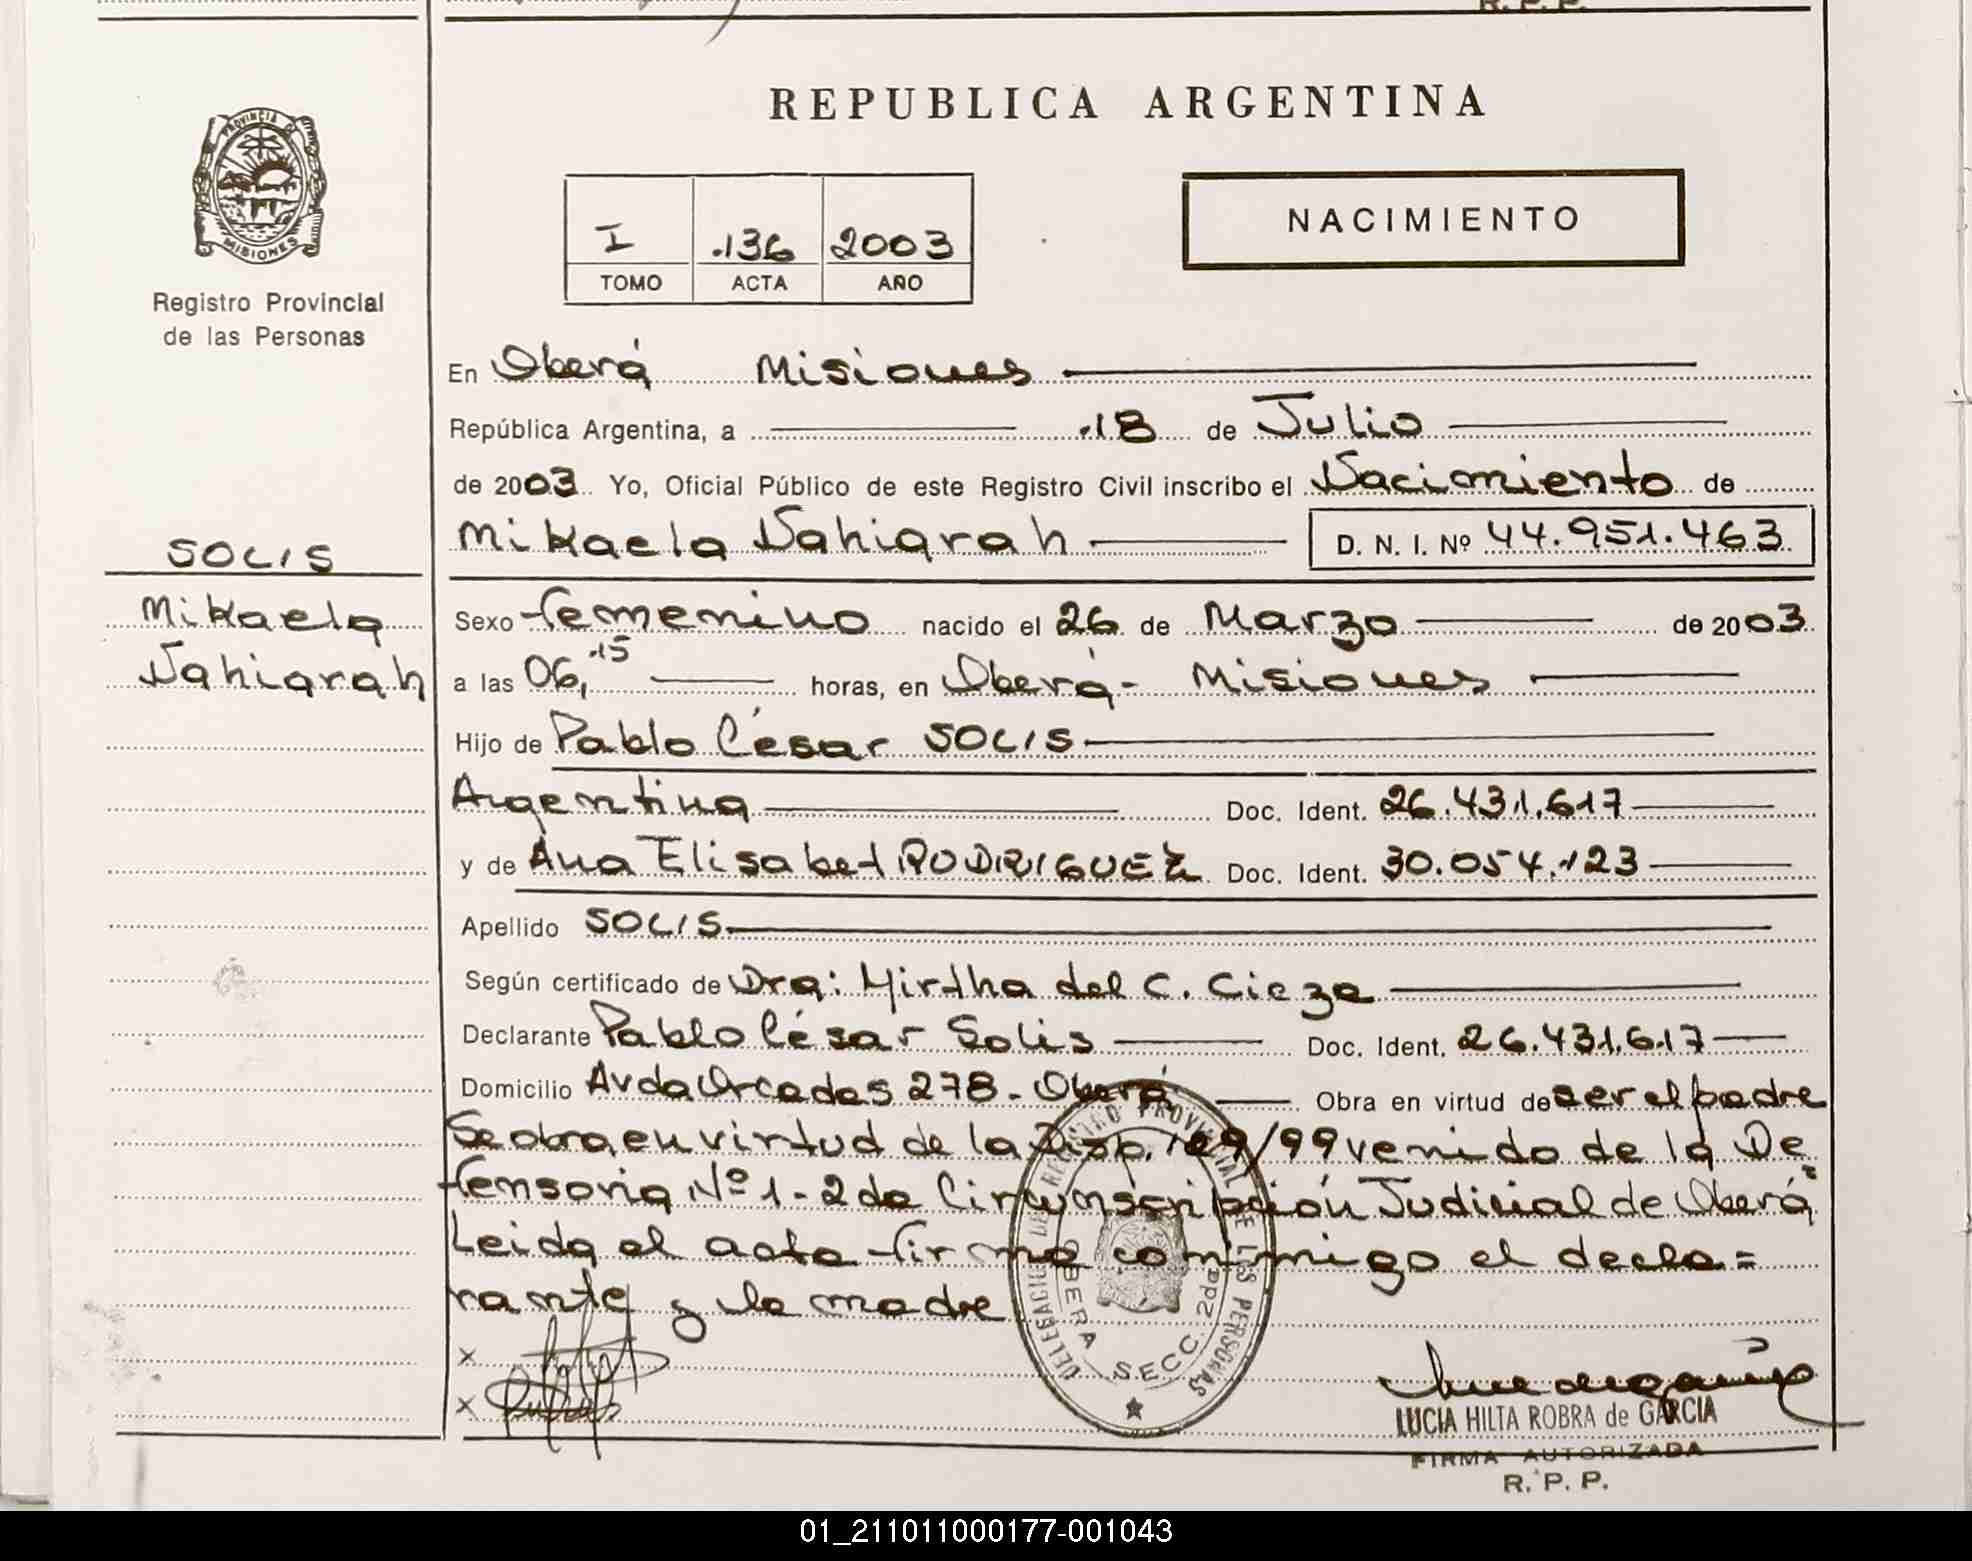 R. P. P.
REPUBLICA ARGENTINA
PROVINCIA DE
MISIONES
Registro Provincial
de las Personas
I 136 2003
TOMO ACTA AÑO
NACIMIENTO
En Oberá Misiones
República Argentina, a 18 de Julio
de 2003 Yo, Oficial Público de este Registro Civil inscribo el Nacimiento de
Mikaela Nahiarah D. N. I. Nº 44.951.463
SOLIS
Mikaela
Nahiarah
Sexo femenino nacido el 26 de Marzo de 2003
a las 06,15 horas, en Oberá - Misiones
Hijo de Pablo César SOLIS
Argentina Doc. Ident. 26.431.617
y de Ana Elisabet RODRIGUEZ Doc. Ident. 30.054.123
Apellido SOLIS
Según certificado de Dra: Mirtha del C. Cieza
Declarante Pablo César Solis Doc. Ident. 26.431.617
Domicilio Avda 278 - Oberá Obra en virtud de ser el padre
Se obra en virtud de la Disp. 109/99 venido de la De
fensoria Nº 1 - 2da Circunscripción Judicial de Oberá
Leida el acta firma conmigo el decla=
rante y la madre
DELEGACION DEL REGISTRO PROVINCIAL DE LAS PERSONAS
OBERA SECC. 2da
x
x
LUCIA HILTA ROBRA de GARCIA
FIRMA AUTORIZADA
R. P. P.
01_211011000177-001043